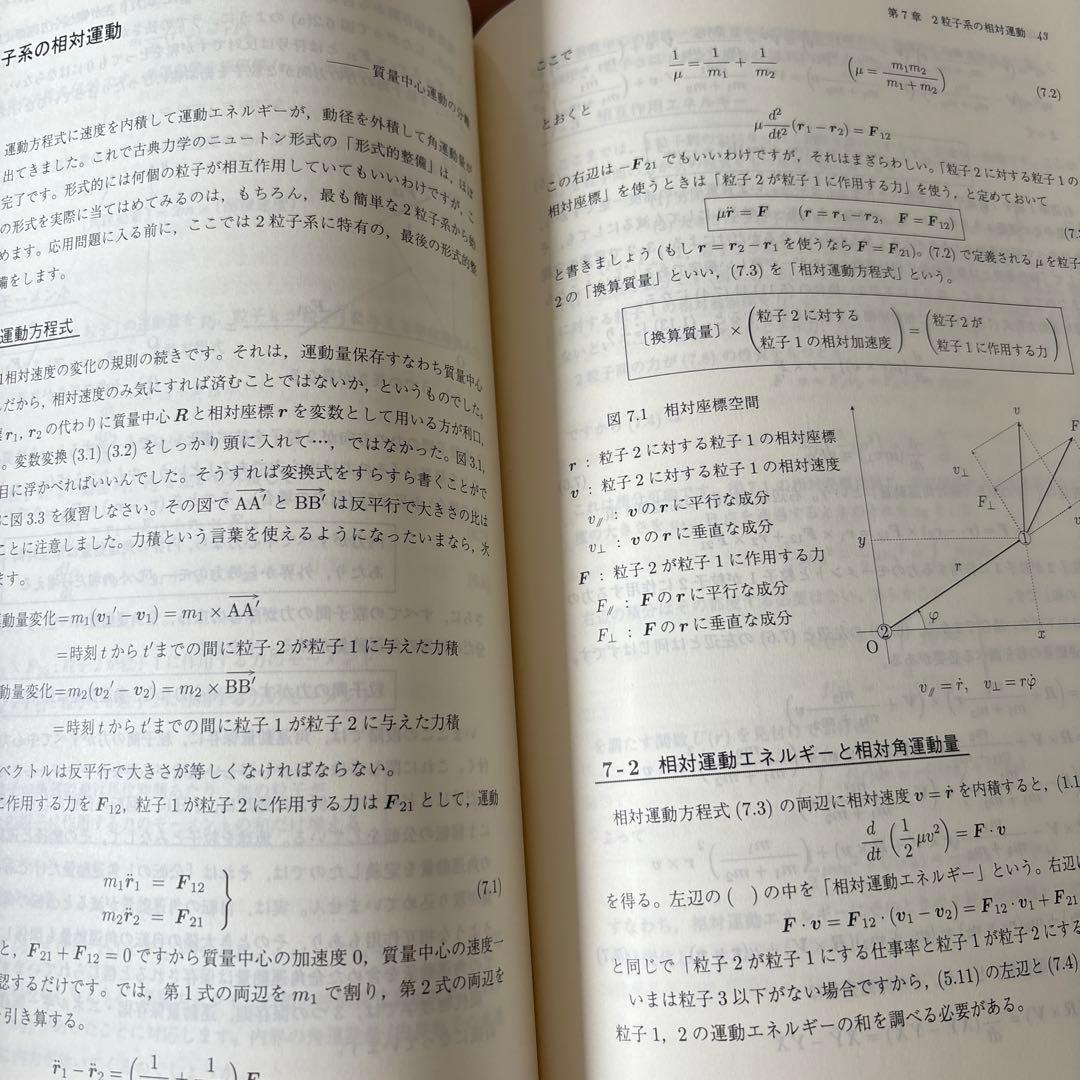 子系の相対運動
——質量中心運動の分離
運動方程式に速度を内積して運動エネルギーが，動径を外積して角運動量が
出てきました。これで古典力学のニュートン形式の「形式的整備」は，ほぼ
完了です。形式的には何個の粒子が相互作用していてもいいわけですが，こ
の形式を実際に当てはめてみるのは，もちろん，最も簡単な2粒子系から始
めます。応用問題に入る前に，ここでは2粒子系に特有の，最後の形式的整
備をします。
運動方程式
相対速度の変化の規則の続きです。それは，運動量保存すなわち質量中心
だから，相対速度のみ気にすれば済むことではないか，というものでした。
r₁, r₂ の代わりに質量中心 R と相対座標 r を変数として用いる方が利口，
。変数変換 (3.1) (3.2) をしっかり頭に入れて…，ではなかった。図3.1，
目に浮かべればいいんでした。そうすれば変換式をすらすら書くことがで
に図3.3を復習しなさい。その図で AA′ と BB′ は反平行で大きさの比は
ことに注意しました。力積という言葉を使えるようになったいまなら，次
ます。
運動量変化＝m₁(v₁′ − v₁) = m₁ × AA′
＝時刻 t から t′ までの間に粒子2が粒子1に与えた力積
動量変化＝m₂(v₂′ − v₂) = m₂ × BB′
＝時刻 t から t′ までの間に粒子1が粒子2に与えた力積
ベクトルは反平行で大きさが等しくなければならない。
に作用する力を F₁₂，粒子1が粒子2に作用する力は F₂₁ として，運動
m₁r̈₁ = F₁₂
m₂r̈₂ = F₂₁ } (7.1)
と，F₂₁ + F₁₂ = 0 ですから質量中心の加速度0，質量中心の速度一
認するだけです。では，第1式の両辺を m₁ で割り，第2式の両辺を
引き算する。
r̈₁ − r̈₂ = (1/m₁ + 1/m₂) F
第7章 2粒子系の相対運動 43
ここで
1/μ = 1/m₁ + 1/m₂ (μ = m₁m₂/(m₁ + m₂)) (7.2)
とおくと
μ d²/dt² (r₁ − r₂) = F₁₂
この右辺は −F₂₁ でもいいわけですが，それはまぎらわしい。「粒子2に対する粒子1の
相対座標」を使うときは「粒子2が粒子1に作用する力」を使う，と定めておいて
μr̈ = F (r = r₁ − r₂, F = F₁₂) (7.
と書きましょう (もし r = r₂ − r₁ を使うなら F = F₂₁)。(7.2) で定義される μ を粒子
2の「換算質量」といい，(7.3) を「相対運動方程式」という。
〔換算質量〕×(粒子2に対する 粒子1の相対加速度) = (粒子2が 粒子1に作用する力)
図7.1 相対座標空間
r：粒子2に対する粒子1の相対座標
v：粒子2に対する粒子1の相対速度
v∥：v の r に平行な成分
v⊥：v の r に垂直な成分
F：粒子2が粒子1に作用する力
F∥：F の r に平行な成分
F⊥：F の r に垂直な成分
v
F
v⊥
F⊥
v
①
y
r
φ
②
O
x
v∥ = ṙ, v⊥ = rφ̇
7-2 相対運動エネルギーと相対角運動量
相対運動方程式 (7.3) の両辺に相対速度 v = ṙ を内積すると，(1.1
d/dt (1/2 μv²) = F · v
を得る。左辺の ( ) の中を「相対運動エネルギー」という。右辺は
F · v = F₁₂ · (v₁ − v₂) = F₁₂ · v₁ + F₂₁
と同じで「粒子2が粒子1にする仕事率と粒子1が粒子2にする
いまは粒子3以下がない場合ですから，(5.11) の左辺と (7.4)
粒子1，2の運動エネルギーの和を調べる必要がある。